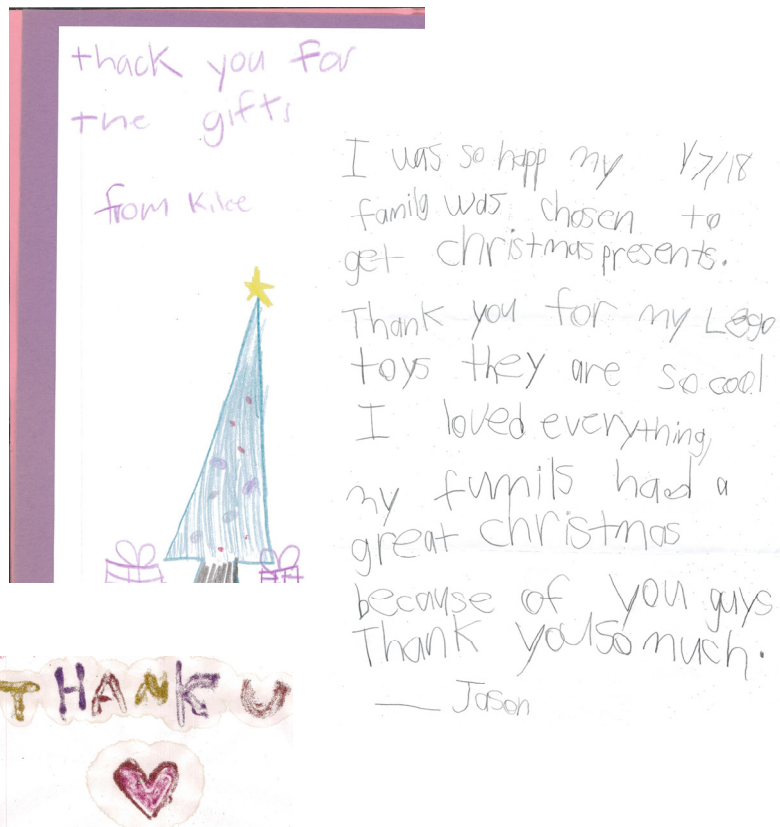 thack you for
the gifts
from Kilee
I was so happ my 1/7/18
family was chosen to
get christmas presents.
Thank you for my Lego
toys they are so cool
I loved everything,
my fumils had a
great christmas
because of you guys
Thank you so much.
— Jason
THANK U